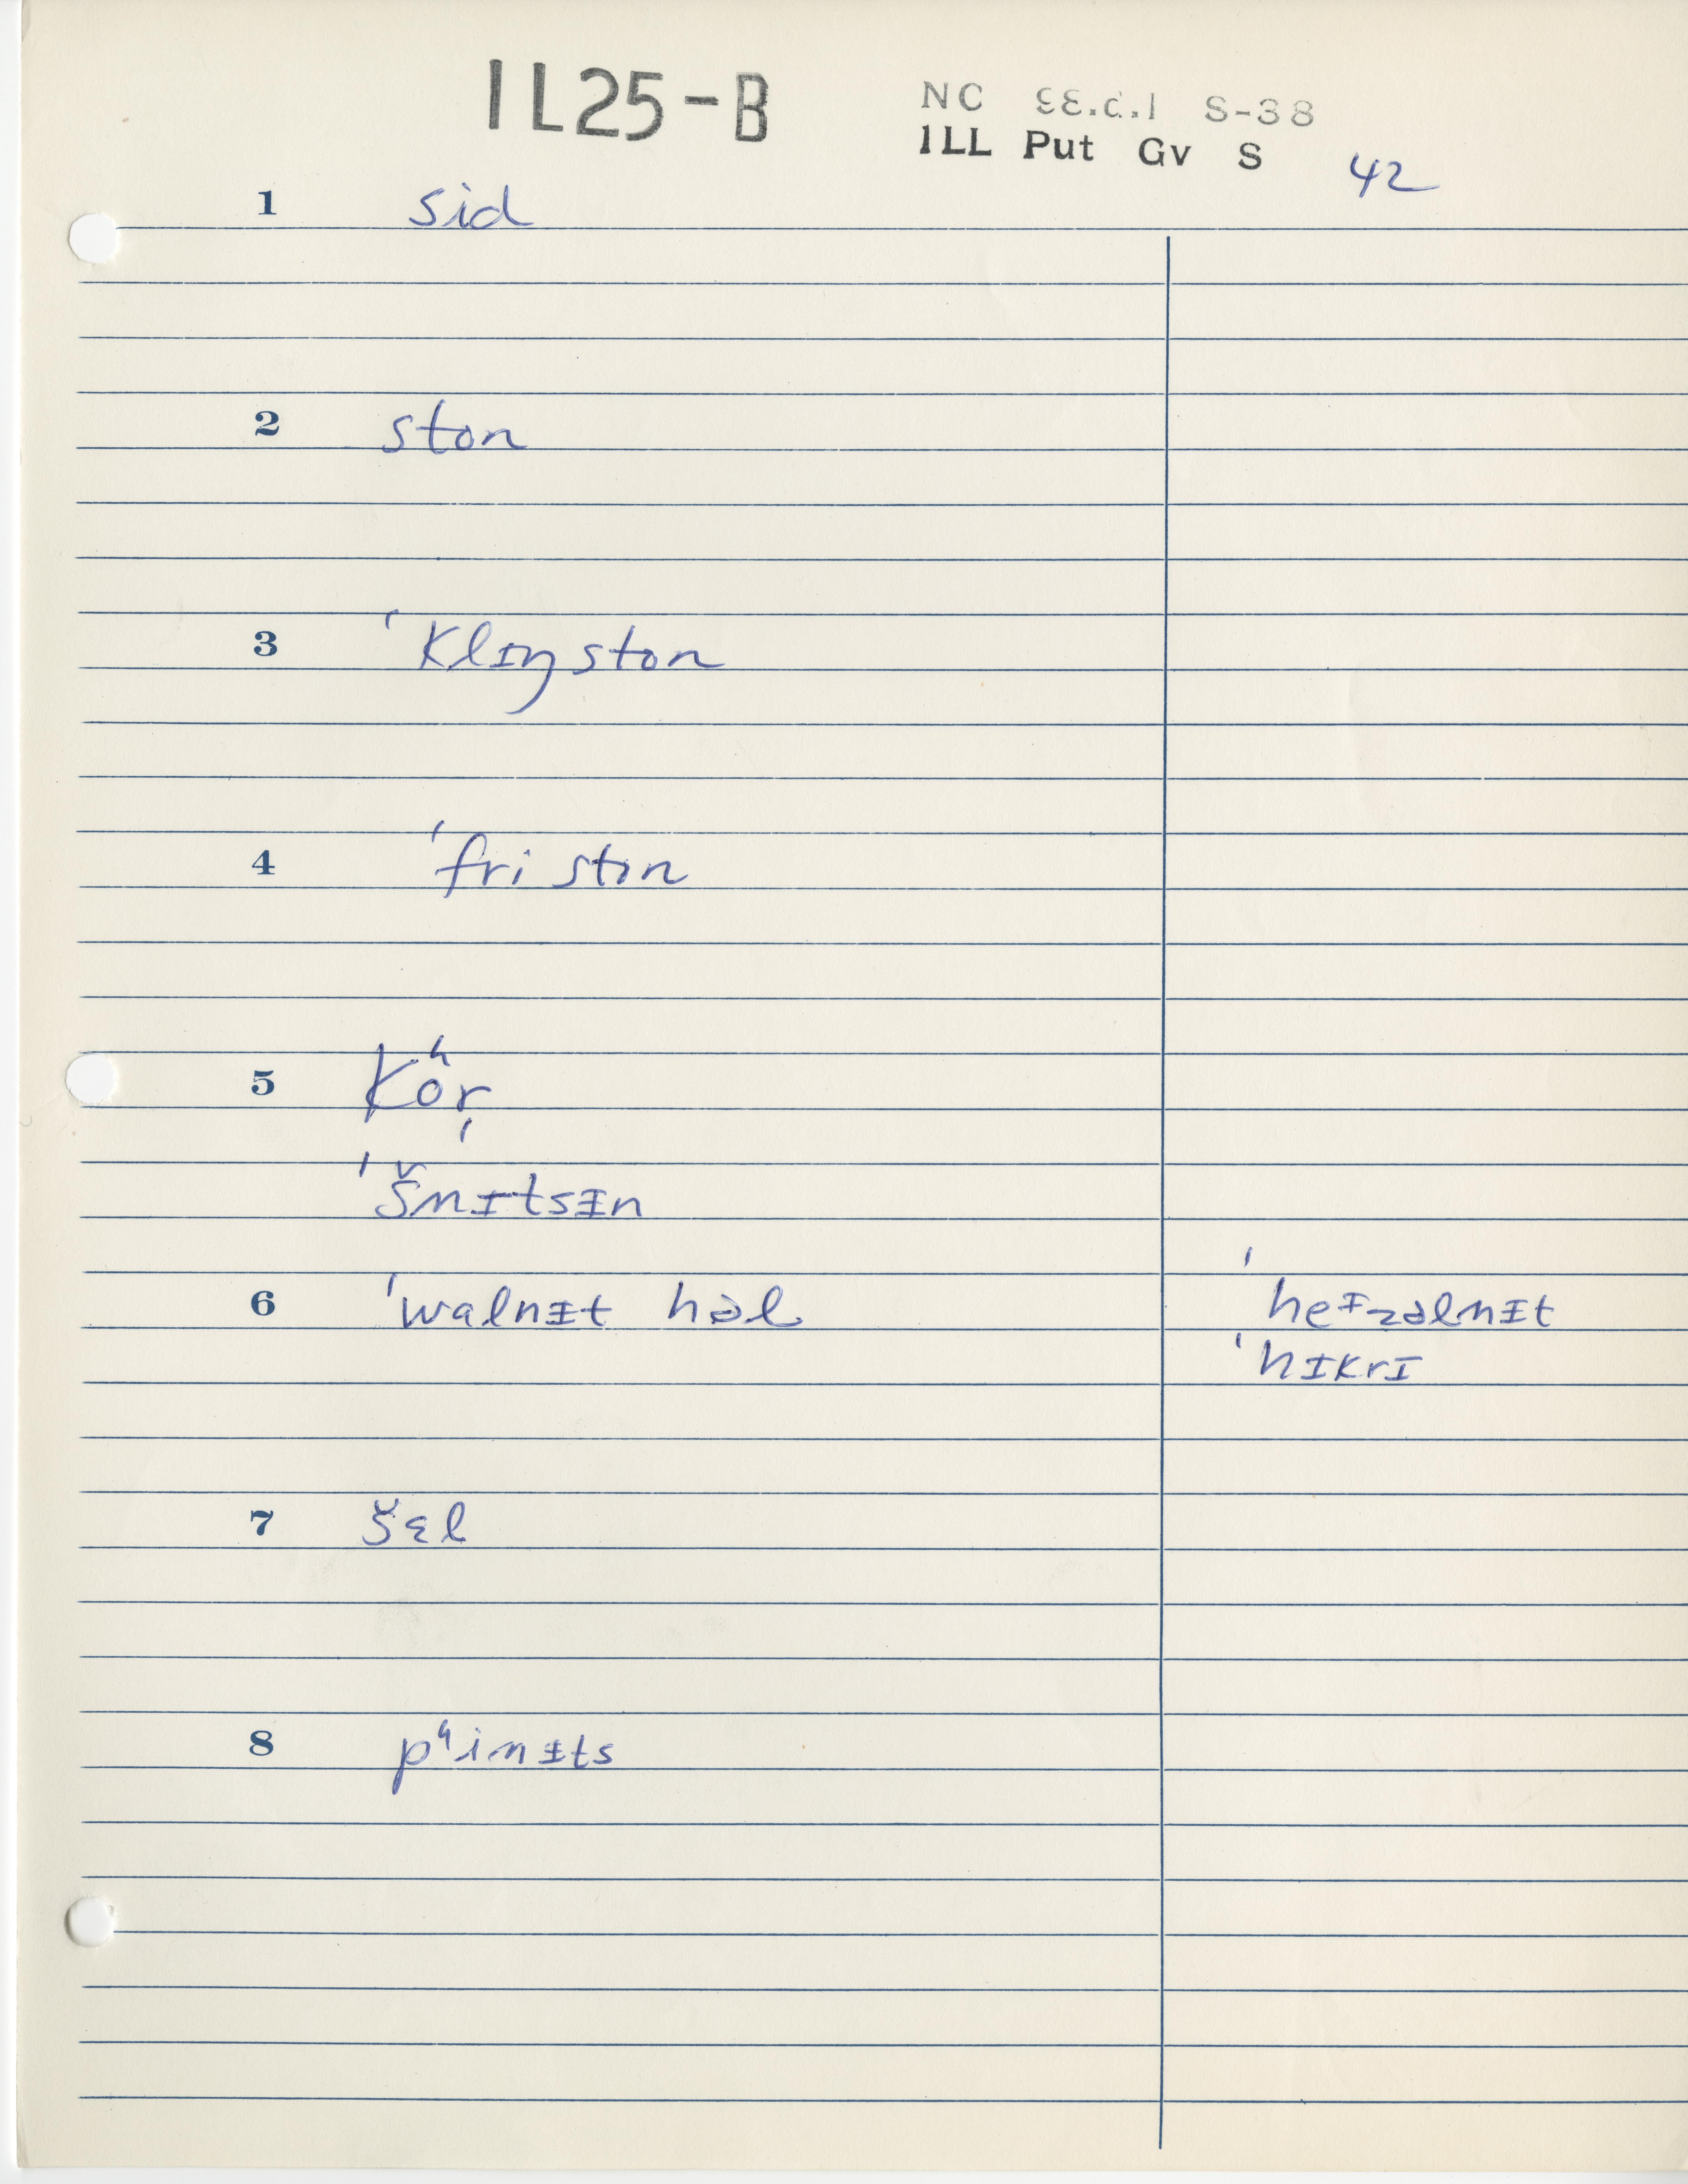 IL25-B
NC
S-38
ILL Put Gv S 42
1 sid
2 ston
3 ˈklɪŋston
4 ˈfri ston
5 kʰor̩
ˈšnɪtsᵻn
6 ˈwalnᵻt həl
ˈheᶦzəlnᵻt
ˈhɪkrɪ
7 šɛl
8 pʰinᵻts